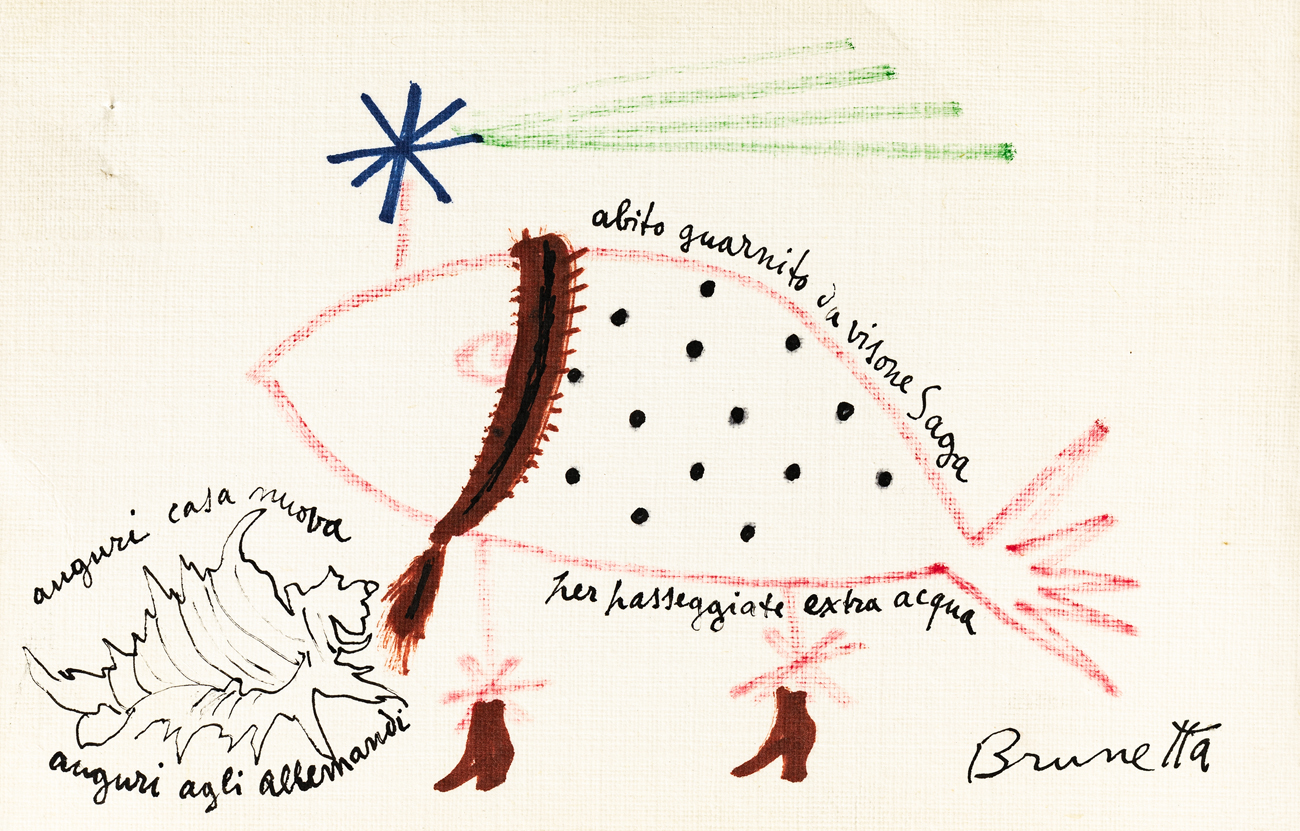 abito guarnito da visone Saga
per passeggiate extra acqua
auguri casa nuova
auguri agli allemandi
Brunetta